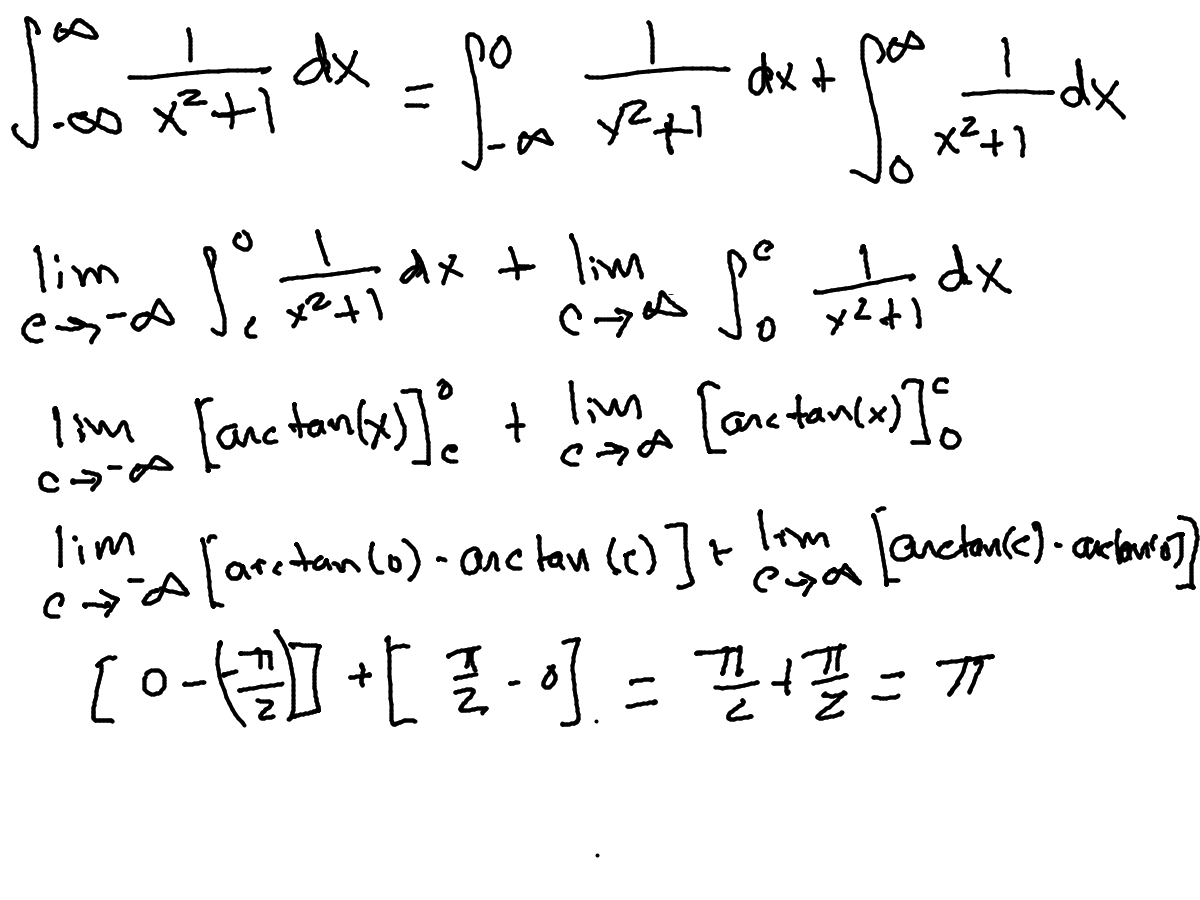 ∫_{-∞}^{∞} 1/(x²+1) dx = ∫_{-∞}^{0} 1/(x²+1) dx + ∫_{0}^{∞} 1/(x²+1) dx
lim_{c→-∞} ∫_{c}^{0} 1/(x²+1) dx + lim_{c→∞} ∫_{0}^{c} 1/(x²+1) dx
lim_{c→-∞} [arctan(x)]_{c}^{0} + lim_{c→∞} [arctan(x)]_{0}^{c}
lim_{c→-∞} [arctan(0) - arctan(c)] + lim_{c→∞} [arctan(c) - arctan(0)]
[0 - (-π/2)] + [π/2 - 0] = π/2 + π/2 = π